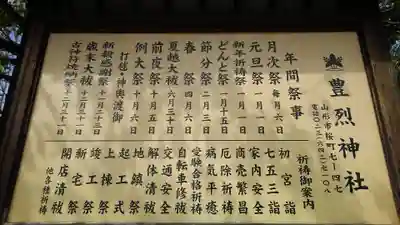 豊烈神社
山形市桜町七ー四七
年間祭事
月次祭 毎月六日
元旦祭 一月一日
新年祈祷祭 一月一日
どんと祭 一月十五日
節分祭 二月三日
春祭 四月六日
夏越大祓 六月三十日
前夜祭 十月五日
例大祭 十月六日
打毬・神輿渡御
新穀感謝祭 十一月二十三日
歳末大祓 十二月三十一日
古神符焼納祭 十二月三十一日
祈祷御案内
初宮詣
七五三詣
家内安全
商売繁昌
厄除祈祷
病気平癒
受験合格祈祷
自転車修祓
交通安全
解体清祓
地鎮祭
起工式
上棟祭
竣工祭
新宅祭
開店清祓
他各種祈祷